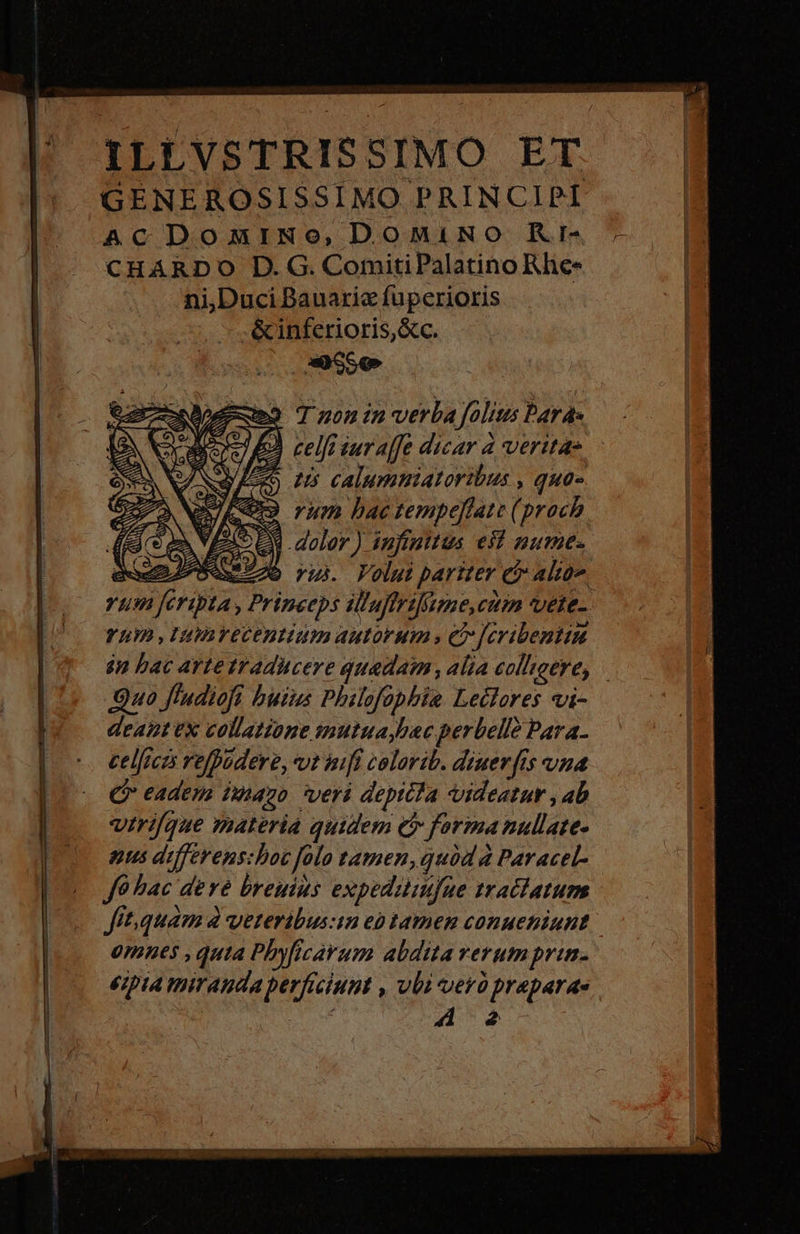 ILLVSTRISSIMO ET
GENEROSISSIMO PRINCIPI
AC DOMINO, DOMINO RI-
CHARDO D. G. Comiti Palatino Rhe-
ni, Duci Bauariæ ſuperioris
& inferioris, &c.
VT non in verba ſolius Para-
celſi iuraſſe dicar à verita-
tis calumniatoribus, quo-
rum hac tempeſtate (proch
dolor) infinitus eſt nume-
rus. Volui pariter & alio-
rum ſcripta, Princeps illuſtriſsime, cùm vete-
rum, tum recentium autorum, & ſcribentiũ
in hac arte traducere quædam, alia colligere,
Quo ſtudioſi huius Philoſophiæ Lectores vi-
deant ex collatione mutua, hæc perbellè Para-
celſicis reſpõdere, vt niſi colorib. diuerſis vna
& eadem imago veri depicta videatur, ab
vtriſque materia quidem & forma nullate-
nus differens: hoc ſolo tamen, quòd à Paracel-
ſo hac de re breuiùs expeditiúſue tractatum
ſit, quàm à veteribus: in eò tamen conueniunt
omnes, quia Phyſicarum abdita rerum prin-
cipia miranda perficiunt, vbi verò præpara-
A 2